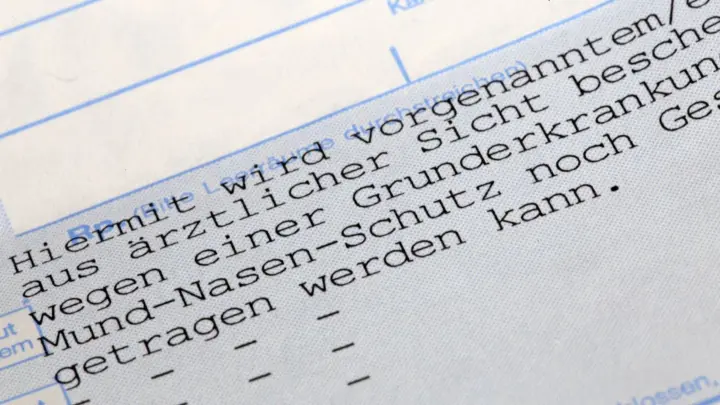 (Bitte Leerräume durchstreichen)
Hiermit wird vorgenanntem/e
aus ärztlicher Sicht besche
wegen einer Grunderkrankun
Mund-Nasen-Schutz noch Ges
getragen werden kann.
- - - -
- - -
-